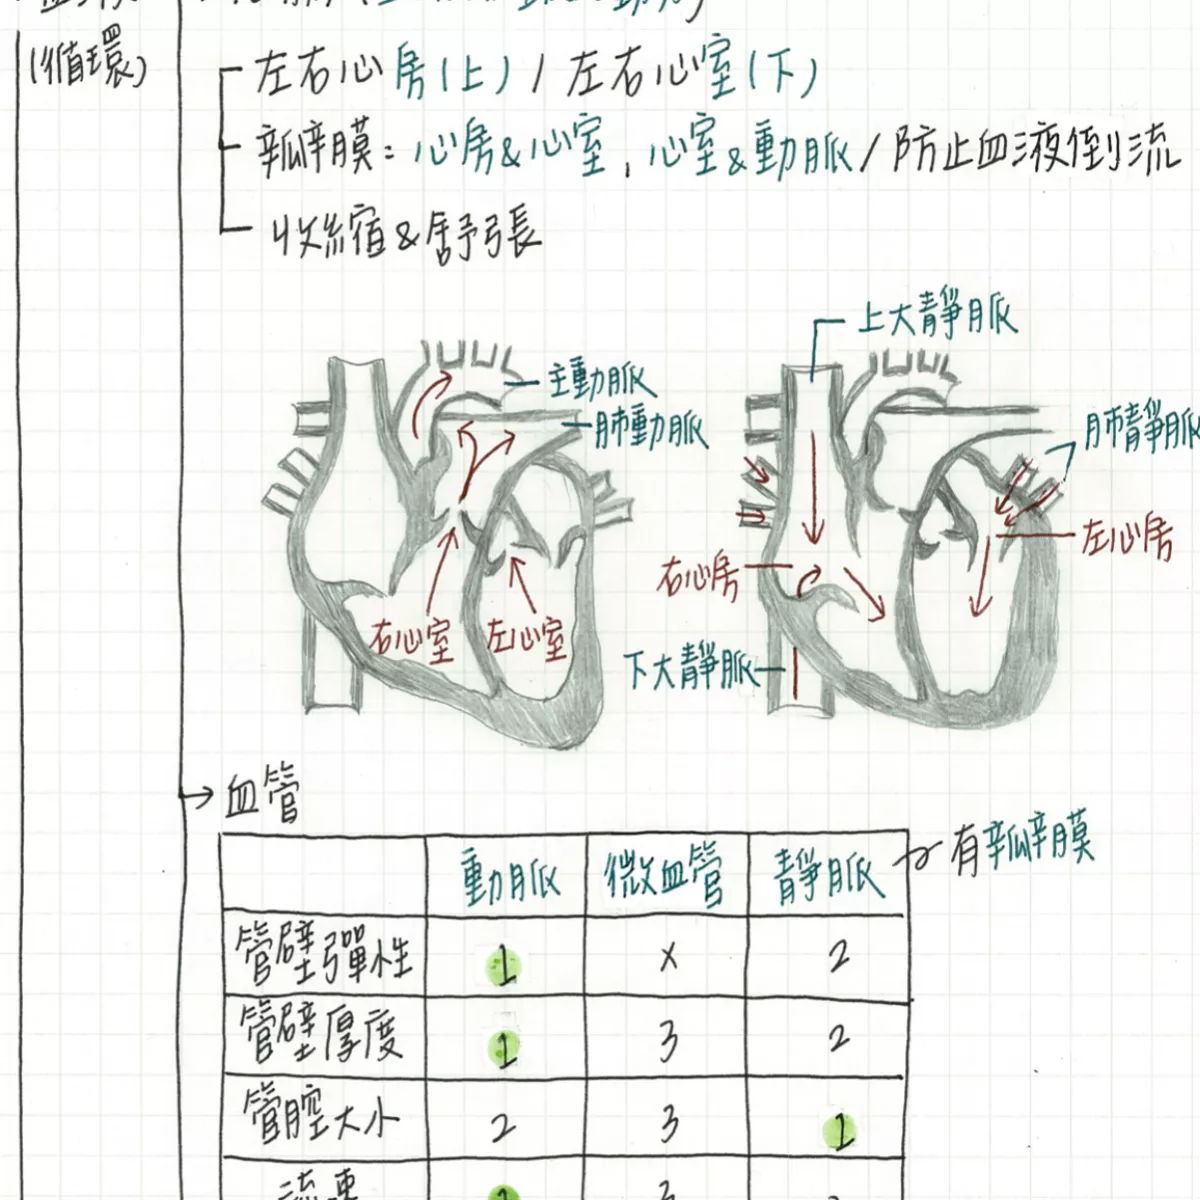 (循環)
左右心房(上) / 左右心室(下)
瓣膜: 心房&心室, 心室&動脈 / 防止血液倒流
收縮&舒張
上大靜脈
主動脈
肺動脈
肺靜脈
左心房
右心房
右心室 左心室
下大靜脈
→ 血管
動脈 微血管 靜脈 有瓣膜
管壁彈性 1 x 2
管壁厚度 1 3 2
管腔大小 2 3 1
流速 1 3